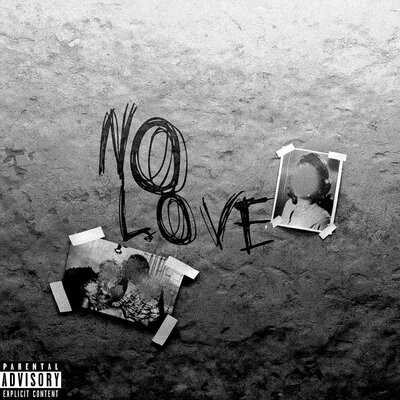 NO
LOVE
PARENTAL
ADVISORY
EXPLICIT CONTENT